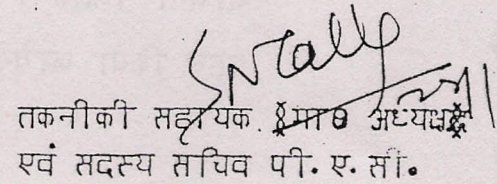 तकनीकी सहायक §मा0 अध्यक्ष§
एवं सदस्य सचिव पी. ए. सी.